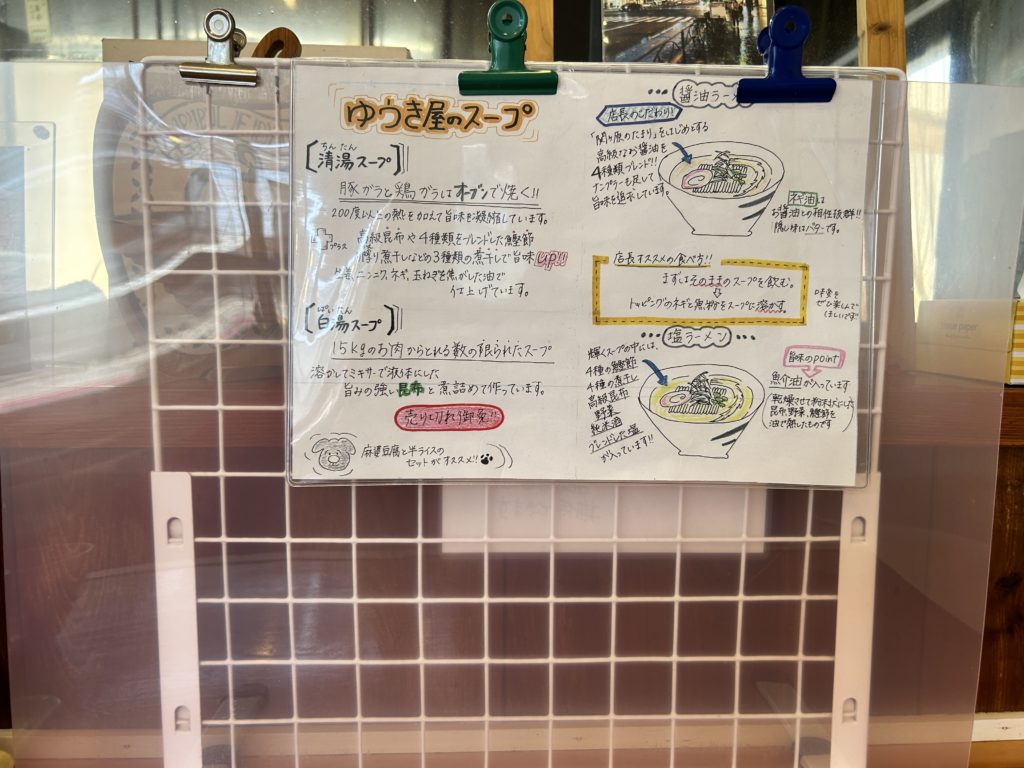 ゆうき屋のスープ
ちんたん
清湯スープ
豚ガラと鶏ガラはオーブンで焼く!!
200度以上の熱を加えて旨味を凝縮しています。
プラス
高級昆布や4種類をブレンドした鰹節
煮干しなど3種類の煮干しで旨味up!!
ニンニク、ネギ、玉ねぎを焦がした油で
仕上げています。
ぱいたん
白湯スープ
15kgのお肉からとれる数の限られたスープ
溶かしてミキサーで液体にした
旨みの強い昆布と煮詰めて作っています。
売り切れ御免!!
麻婆豆腐と半ライスの
セットがオススメ!!
醤油ラーメン
店長のこだわり!!
「関ヶ原のたまり」をはじめとする
高級なお醤油を
4種類ブレンド!!
ナンプラーも足して
旨味を追求しています。
お醤油との相性抜群!!
隠し味はバターです。
店長オススメの食べ方!!
まずはそのままのスープを飲む。
トッピングのネギと魚粉をスープに溶かす。
味変を
ぜひ楽しんで
ほしいです!!
塩ラーメン
輝くスープの中には、
4種の鰹節
4種の煮干し
高級昆布
野菜
純米酒
ブレンドした塩
が入っています!!
旨味のpoint
魚介油が入っています
乾燥させて粉末にした
昆布、野菜、鰹節を
油で熱したものです